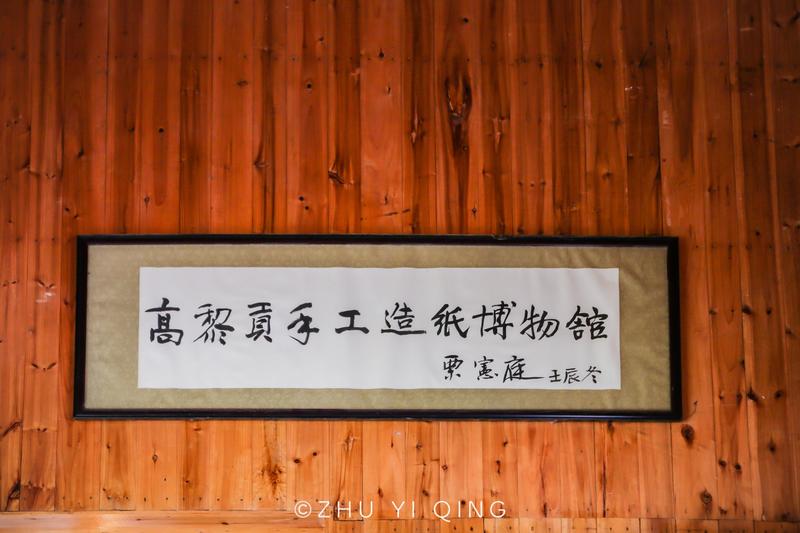 高黎貢手工造紙博物舘
栗憲庭 壬辰冬
©ZHU YI QING